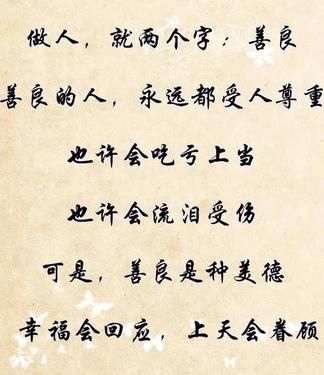 做人，就两个字：善良
善良的人，永远都受人尊重
也许会吃亏上当
也许会流泪受伤
可是，善良是种美德
幸福会回应，上天会眷顾